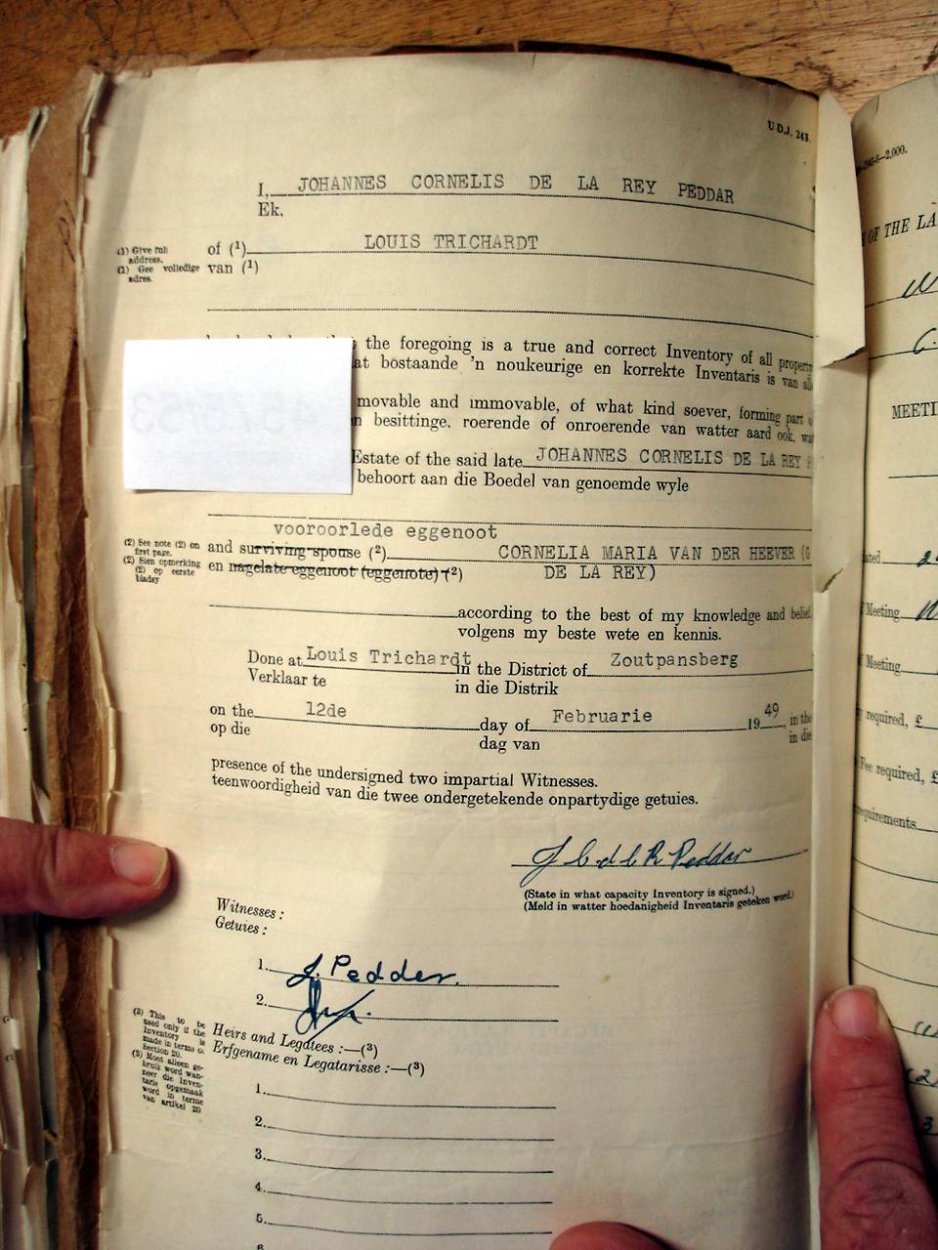 U.D.J. 243.
I, JOHANNES CORNELIS DE LA REY PEDDAR
Ek,
(1) Give full address.
(1) Gee volledige adres.
of (1) LOUIS TRICHARDT
van (1)
the foregoing is a true and correct Inventory of all property
at bostaande 'n noukeurige en korrekte Inventaris is van
movable and immovable, of what kind soever, forming part
besittinge, roerende of onroerende van watter aard ook,
Estate of the said late JOHANNES CORNELIS DE LA REY
behoort aan die Boedel van genoemde wyle
vooroorlede eggenoot
(2) See note (2) on first page.
(2) Sien opmerking (2) op eerste bladsy
and surviving spouse (2) CORNELIA MARIA VAN DER HEEVER (G
en nagelate eggenoot (eggenote) (2) DE LA REY)
according to the best of my knowledge and belief.
volgens my beste wete en kennis.
Done at Louis Trichardt in the District of Zoutpansberg
Verklaar te in die Distrik
on the 12de day of Februarie 1949, in the
op die dag van in die
presence of the undersigned two impartial Witnesses.
teenwoordigheid van die twee ondergetekende onpartydige getuies.
J C d l R Peddar
(State in what capacity Inventory is signed.)
(Meld in watter hoedanigheid Inventaris geteken word.)
Witnesses :
Getuies :
1. J. Pedder.
2.
(3) This to be used only if the Inventory is made in terms of Section 20.
(3) Moet alleen gebruik word wanneer die Inventaris opgemaak word in terme van artikel 20
Heirs and Legatees :—(3)
Erfgename en Legatarisse :—(3)
1.
2.
3.
4.
5.
6
—2,000.
OF THE LA
MEETI
Meeting
Meeting
required, £
Fee required, £